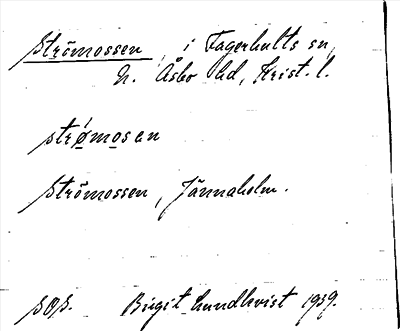 Strömossen, i Fagerhults sn,
N. Åsbo hd, Krist. l.
strømosen
Strömossen, Jännaholm.
SOS. Birgit Lundkvist 1939.